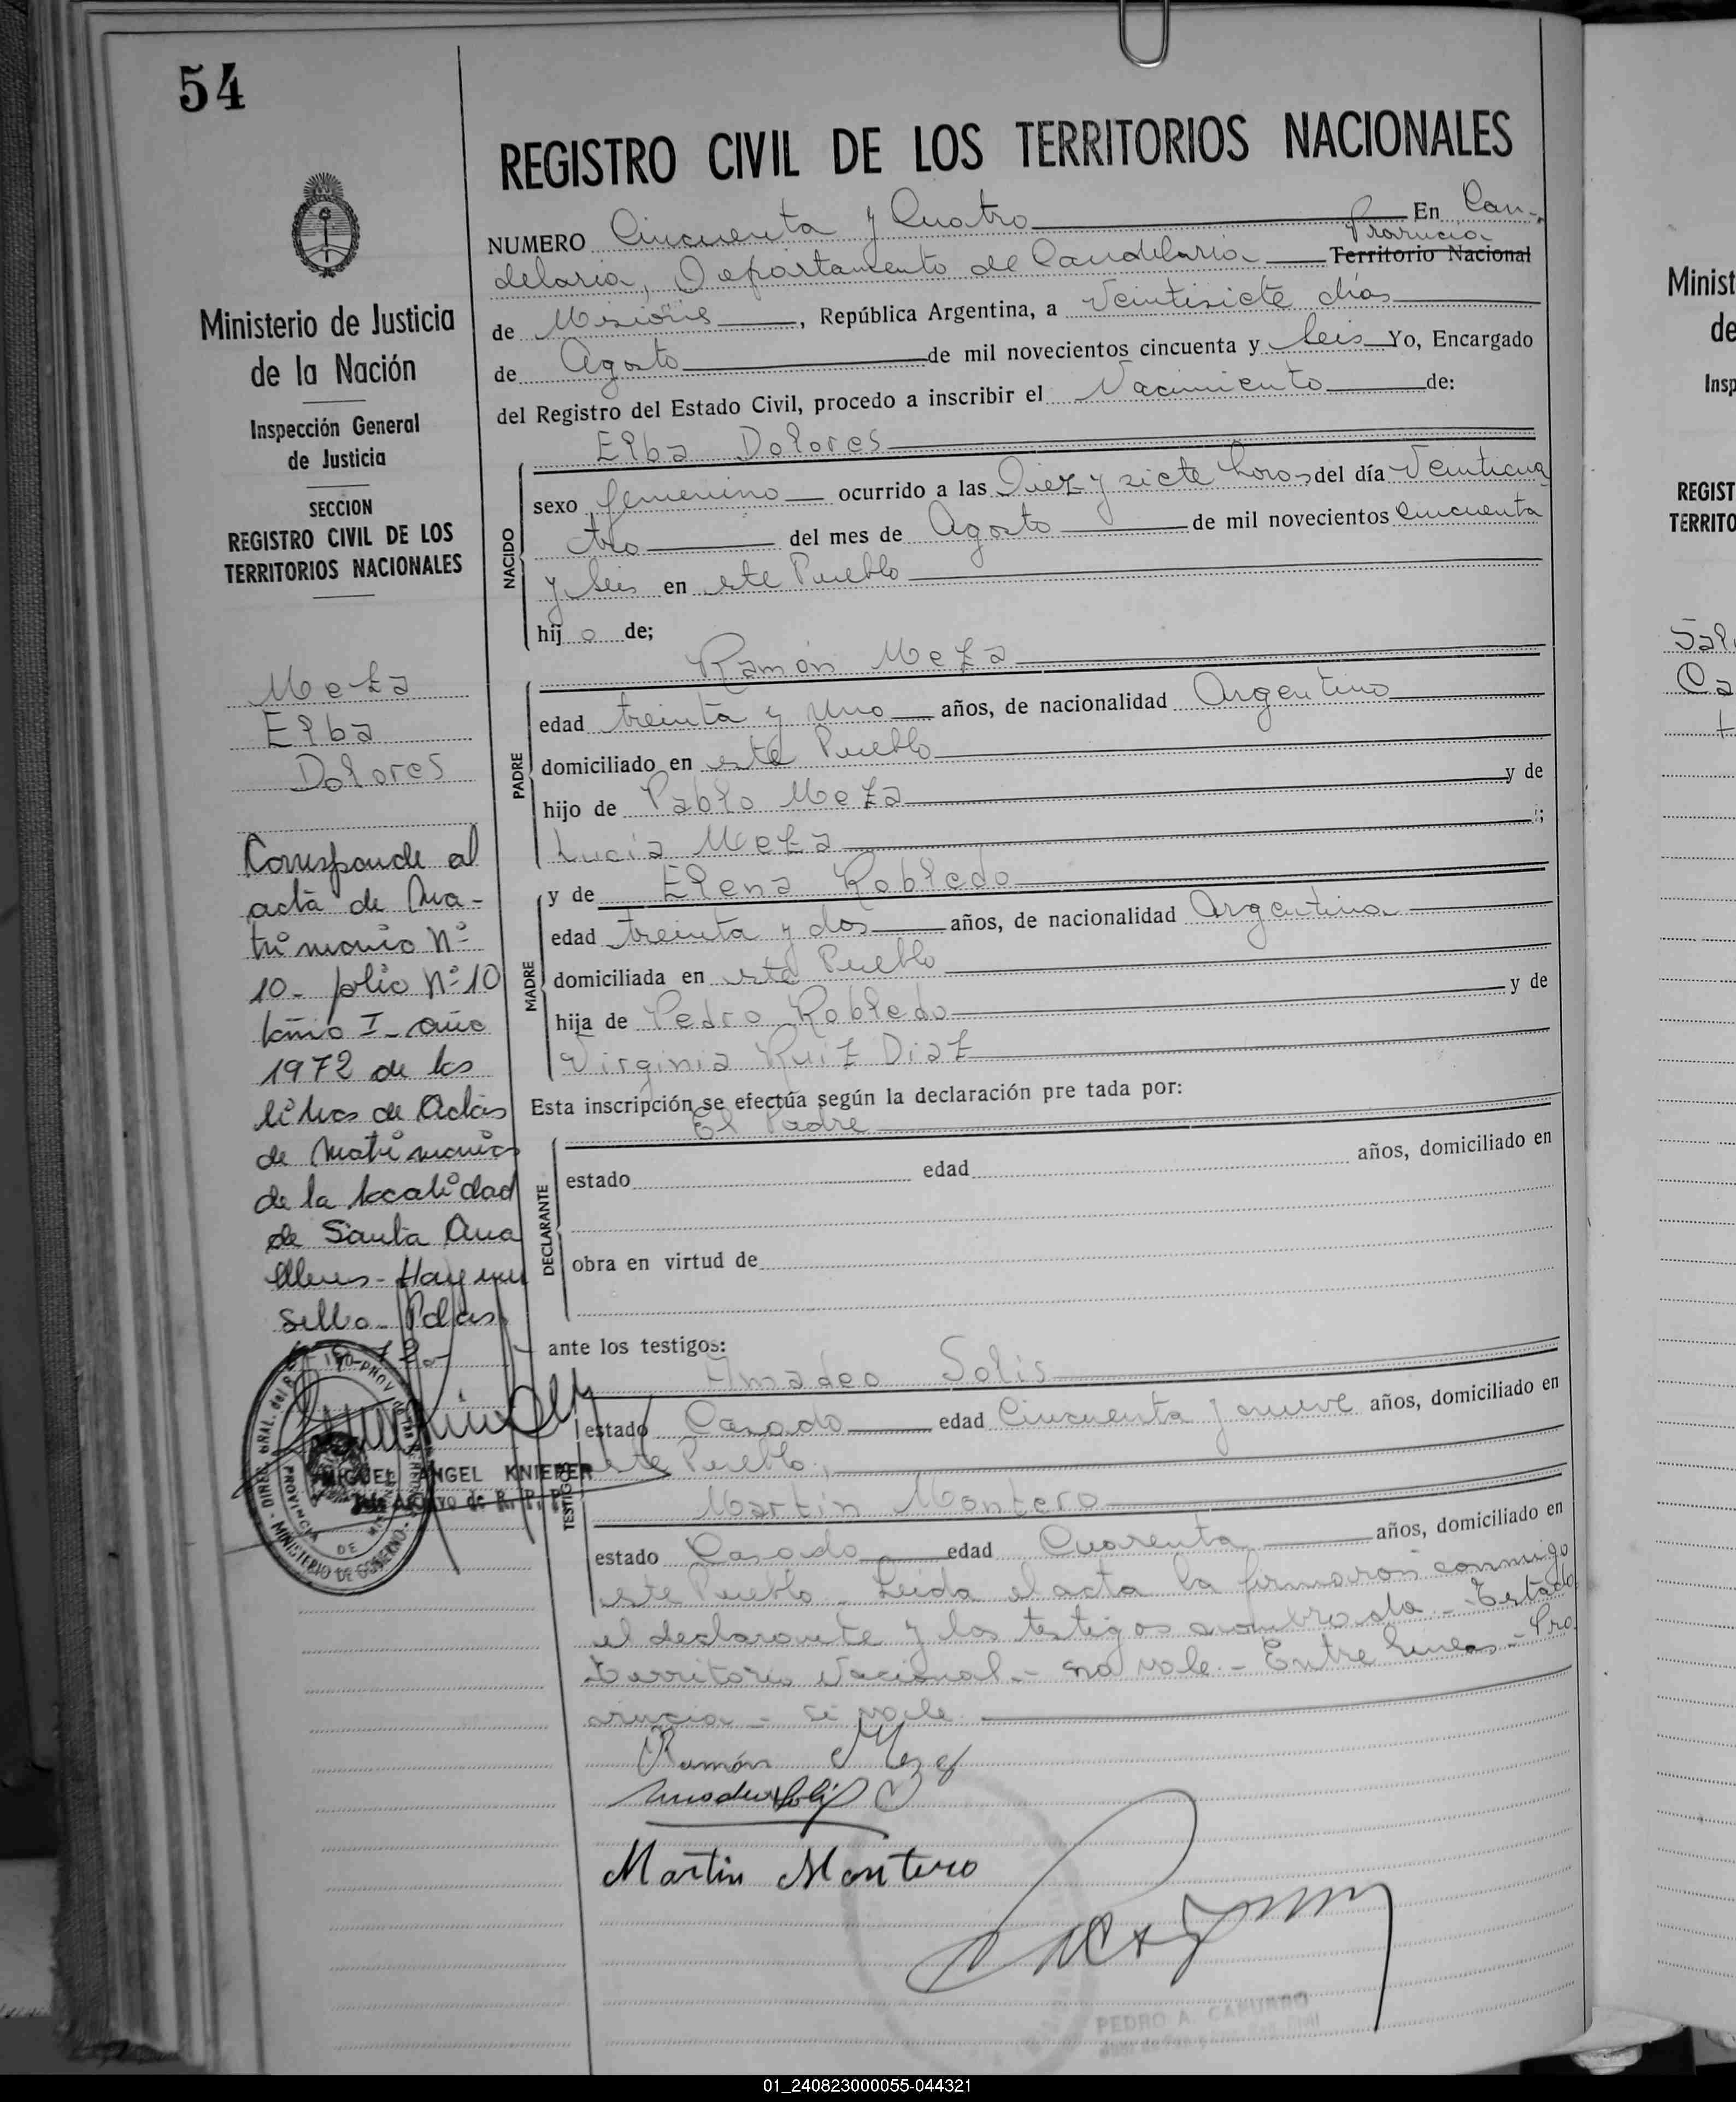 54
REGISTRO CIVIL DE LOS TERRITORIOS NACIONALES
NUMERO Cincuenta y Cuatro En Can-
Provincia
delaria, Departamento de Candelaria Territorio Nacional
de Misiones, República Argentina, a Veintisiete días
de Agosto de mil novecientos cincuenta y seis Yo, Encargado
del Registro del Estado Civil, procedo a inscribir el Nacimiento de:
Elba Dolores
NACIDO
sexo femenino ocurrido a las Diez y siete horas del día Veinticua
tro del mes de Agosto de mil novecientos cincuenta
y seis en este Pueblo
hij a de;
Ramón Meza
PADRE
edad treinta y uno años, de nacionalidad Argentino
domiciliado en este Pueblo
hijo de Pablo Meza y de
Lucía Meza ;
MADRE
y de Elena Robledo
edad treinta y dos años, de nacionalidad Argentina
domiciliada en este Pueblo
hija de Pedro Robledo y de
Virginia Ruiz Diaz
Esta inscripción se efectúa según la declaración pre tada por:
El Padre
DECLARANTE
estado edad años, domiciliado en
obra en virtud de
ante los testigos:
Amadeo Solis
TESTIGOS
estado Casado edad Cincuenta y nueve años, domiciliado en
este Pueblo.
Martín Montero
estado Casado edad Cuarenta años, domiciliado en
este Pueblo - Leída el acta la firmaron conmigo
el declarante y los testigos nombrado - Testado
Territorio Nacional - no vale - Entre líneas - Pro
vincia - si vale
Ramón Meza
Amadeo Solis
Martin Montero
PEDRO A.
Ministerio de Justicia
de la Nación
Inspección General
de Justicia
SECCION
REGISTRO CIVIL DE LOS
TERRITORIOS NACIONALES
Meza
Elba
Dolores
Corresponde al
acta de Ma-
trimonio Nº
10 - folio Nº 10
tomo I - año
1972 de los
libros de Actas
de Matrimonios
de la localidad
de Santa Ana
Mnes - Hay un
sello - Pdas
MIGUEL ANGEL KNIEPER
Archivo de R. P. P.
PROVINCIA DE
MINISTERIO DE GOBIERNO
Minist
de
Insp
REGIST
TERRITO
01_240823000055-044321